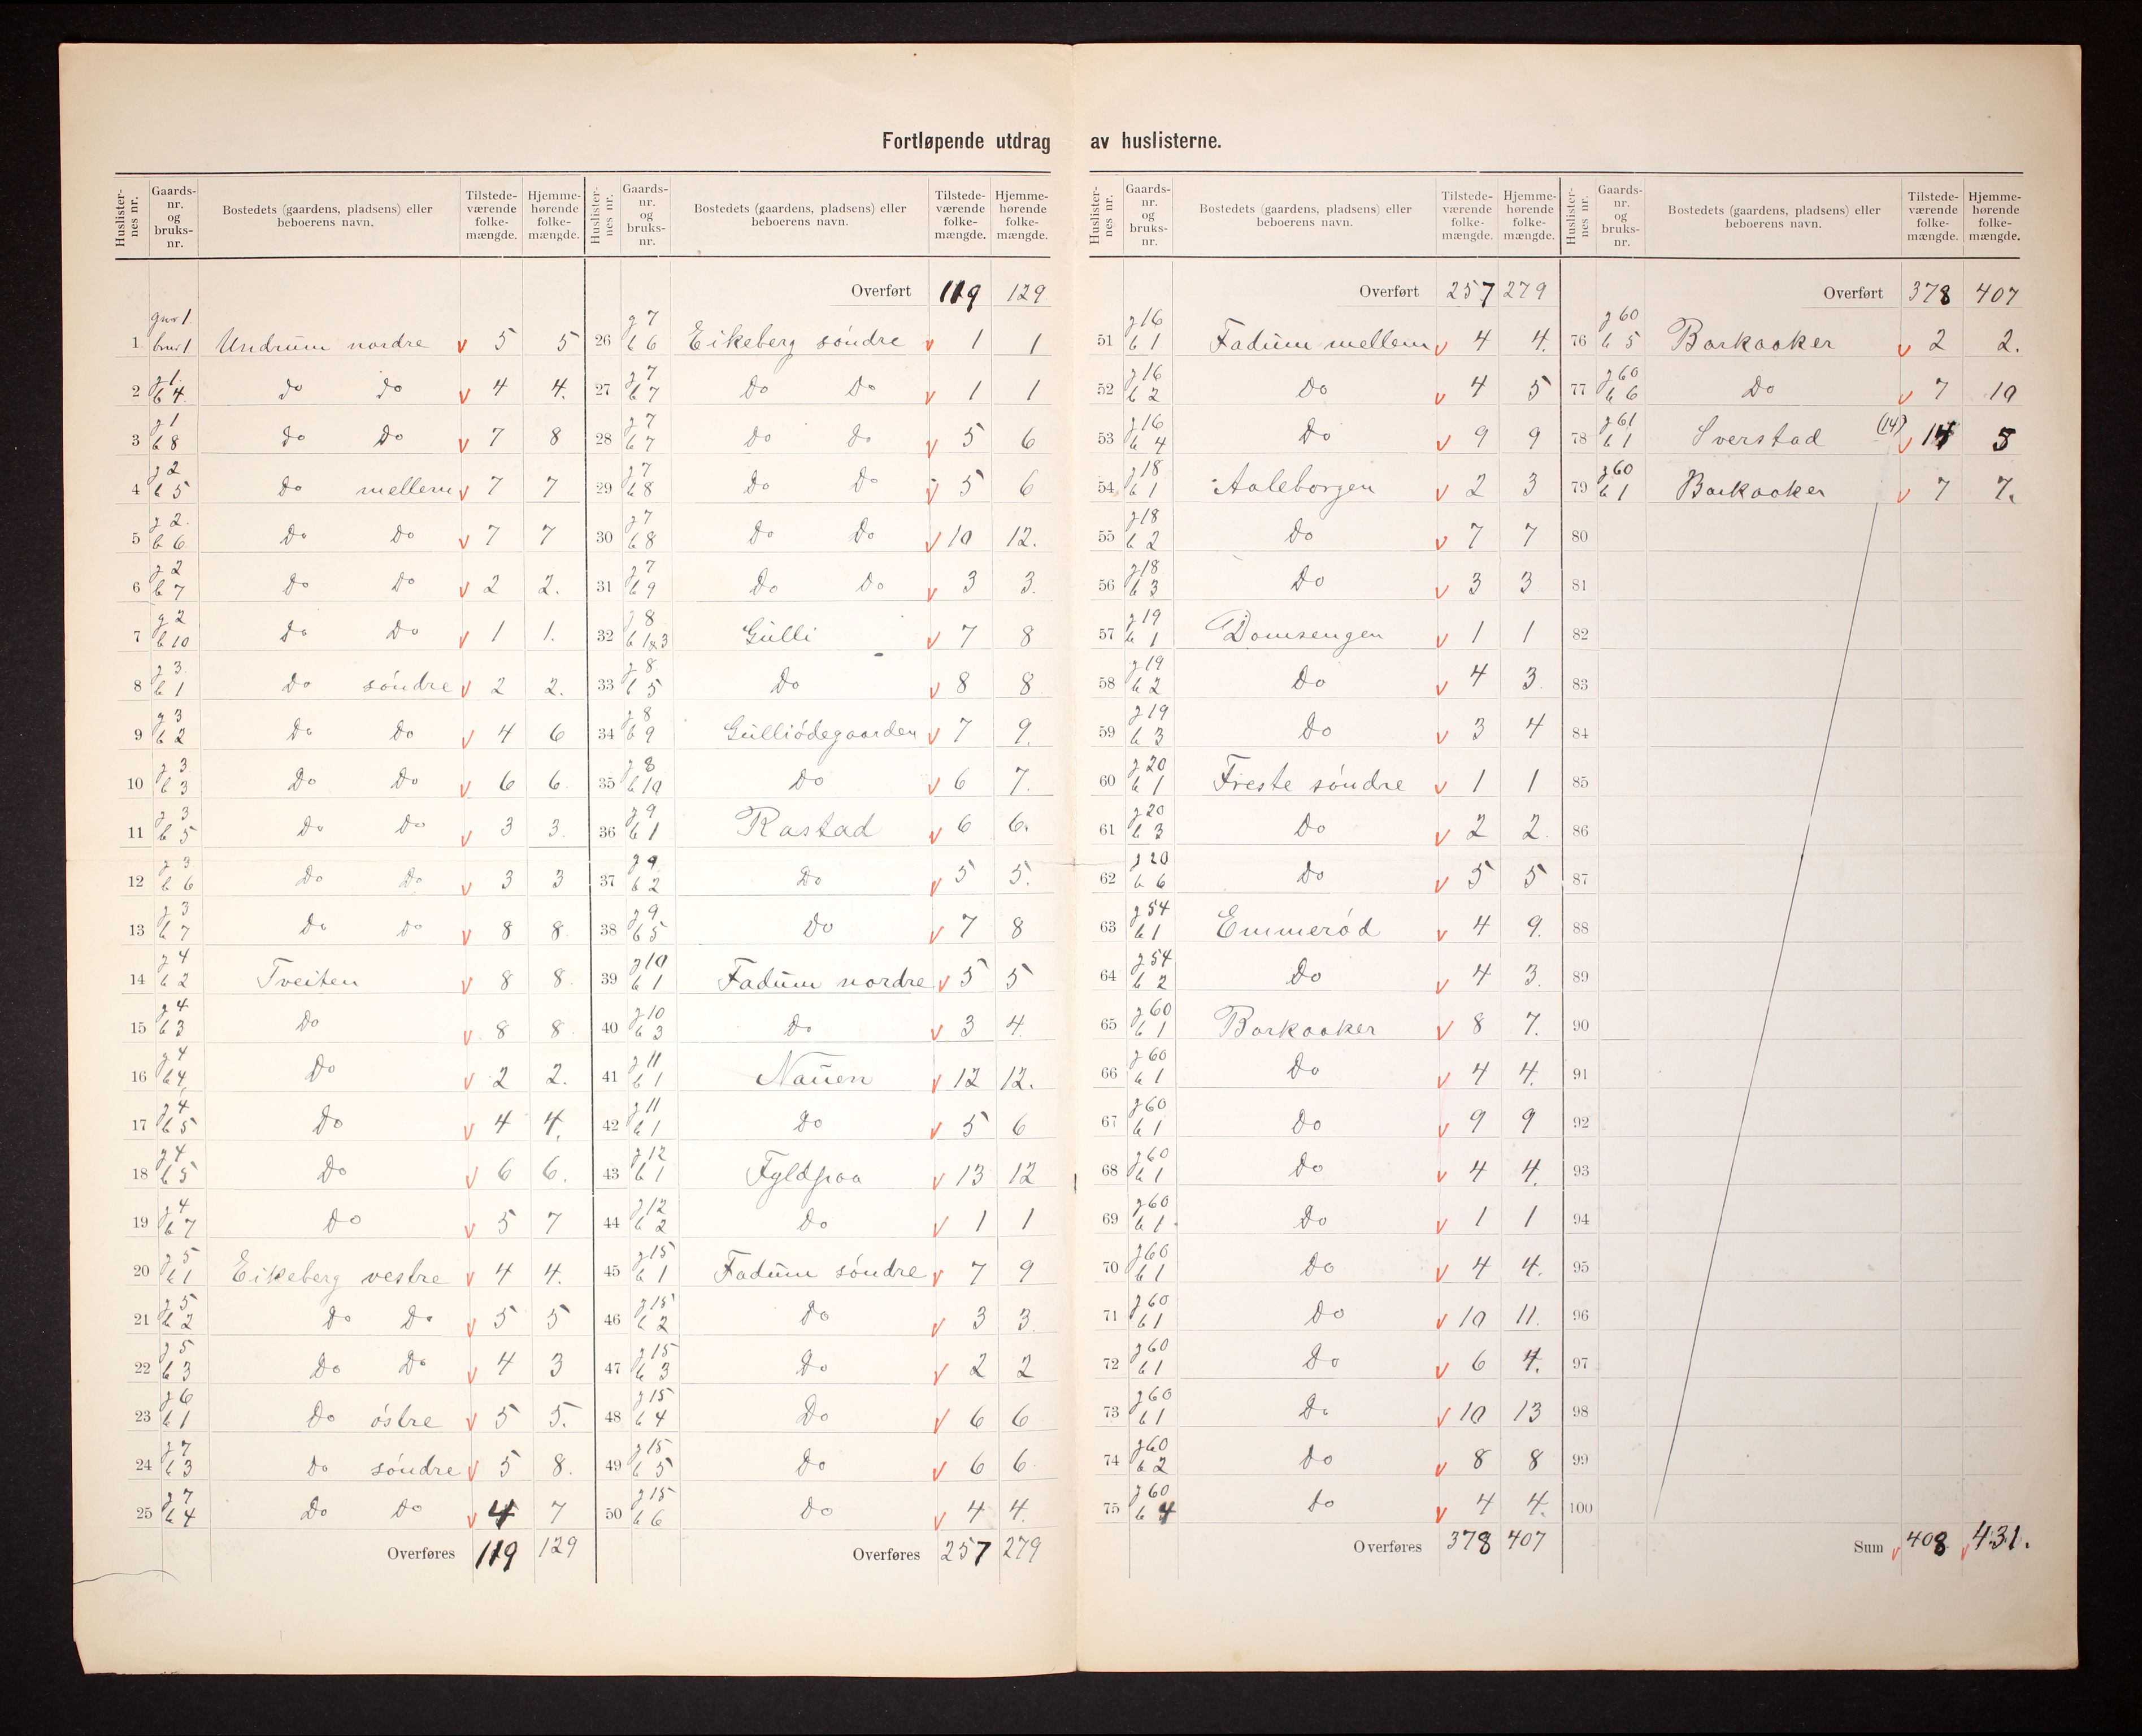 Fortløpende utdrag av huslisterne.
Huslisternes nr. Gaards-nr. og bruks-nr. Bostedets (gaardens, pladsens) eller beboerens navn. Tilstedeværende folkemængde. Hjemmehørende folkemængde.
1 gnr 1. bnr 1 Undrum nordre v 5 5
2 g 1. b 4. do do v 4 4.
3 g 1 b 8 do do v 7 8
4 g 2 b 5 do mellem v 7 7
5 g 2. b 6 do do v 7 7
6 g 2 b 7 do do v 2 2.
7 g 2 b 10 do do v 1 1.
8 g 3. b 1 do söndre v 2 2.
9 g 3 b 2 do do v 4 6
10 g 3 b 3 do do v 6 6.
11 g 3 b 5 do do v 3 3.
12 g 3 b 6 do do v 3 3
13 g 3 b 7 do do v 8 8
14 g 4 b 2 Tveiten v 8 8.
15 g 4 b 3 do v 8 8
16 g 4 b 4 do v 2 2.
17 g 4 b 5 do v 4 4.
18 g 4 b 5 do v 6 6.
19 g 4 b 7 do v 5 7
20 g 5 b 1 Eikeberg vestre v 4 4.
21 g 5 b 2 do do v 5 5
22 g 5 b 3 do do v 4 3
23 g 6 b 1 do östre v 5 5.
24 g 7 b 3 do söndre v 5 8.
25 g 7 b 4 do do v 4 7
Overføres 119 129
Huslisternes nr. Gaards-nr. og bruks-nr. Bostedets (gaardens, pladsens) eller beboerens navn. Tilstedeværende folkemængde. Hjemmehørende folkemængde.
Overført 119 129
26 g 7 b 6 Eikeberg söndre v 1 1
27 g 7 b 7 do do v 1 1
28 g 7 b 7 do do v 5 6
29 g 7 b 8 do do v 5 6
30 g 7 b 8 do do v 10 12.
31 g 7 b 9 do do v 3 3.
32 g 8 b 1x3 Gulli v 7 8
33 g 8 b 5 do v 8 8
34 g 8 b 9 Gulliödegaarden v 7 9.
35 g 8 b 10 do v 6 7.
36 g 9 b 1 Rastad v 6 6.
37 g 9 b 2 do v 5 5.
38 g 9 b 5 do v 7 8
39 g 10 b 1 Fadum nordre v 5 5
40 g 10 b 3 do v 3 4.
41 g 11 b 1 Nauen v 12 12.
42 g 11 b 1 do v 5 6
43 g 12 b 1 Fyldpaa v 13 12
44 g 12 b 2 do v 1 1
45 g 15 b 1 Fadum söndre v 7 9
46 g 15 b 2 do v 3 3.
47 g 15 b 3 do v 2 2
48 g 15 b 4 do v 6 6
49 g 15 b 5 do v 6 6
50 g 15 b 6 do v 4 4.
Overføres 257 279
Huslisternes nr. Gaards-nr. og bruks-nr. Bostedets (gaardens, pladsens) eller beboerens navn. Tilstedeværende folkemængde. Hjemmehørende folkemængde.
Overført 257 279
51 g 16 b 1 Fadum mellem v 4 4.
52 g 16 b 2 do v 4 5
53 g 16 b 4 do v 9 9
54 g 18 b 1 Aaleborgen v 2 3
55 g 18 b 2 do v 7 7
56 g 18 b 3 do v 3 3
57 g 19 b 1 Domsengen v 1 1
58 g 19 b 2 do v 4 3.
59 g 19 b 3 do v 3 4
60 g 20 b 1 Freste söndre v 1 1
61 g 20 b 3 do v 2 2.
62 g 20 b 6 do v 5 5
63 g 54 b 1 Emmeröd v 4 9.
64 g 54 b 2 do v 4 3.
65 g 60 b 1 Barkaaker v 8 7.
66 g 60 b 1 do v 4 4.
67 g 60 b 1 do v 9 9
68 g 60 b 1 do v 4 4.
69 g 60 b 1. do v 1 1
70 g 60 b 1 do v 4 4.
71 g 60 b 1 do v 10 11.
72 g 60 b 1 do v 6 4.
73 g 60 b 1 do v 10 13
74 g 60 b 2 do v 8 8
75 g 60 b 4 do v 4 4.
Overføres 378 407
Huslisternes nr. Gaards-nr. og bruks-nr. Bostedets (gaardens, pladsens) eller beboerens navn. Tilstedeværende folkemængde. Hjemmehørende folkemængde.
Overført 378 407
76 g 60 b 5 Barkaaker v 2 2.
77 g 60 b 6 do v 7 10
78 g 61 b 1 Sverstad (14) v 14 5
79 g 60 b 1 Barkaaker v 7 7.
80
81
82
83
84
85
86
87
88
89
90
91
92
93
94
95
96
97
98
99
100
Sum v 408 v 431.